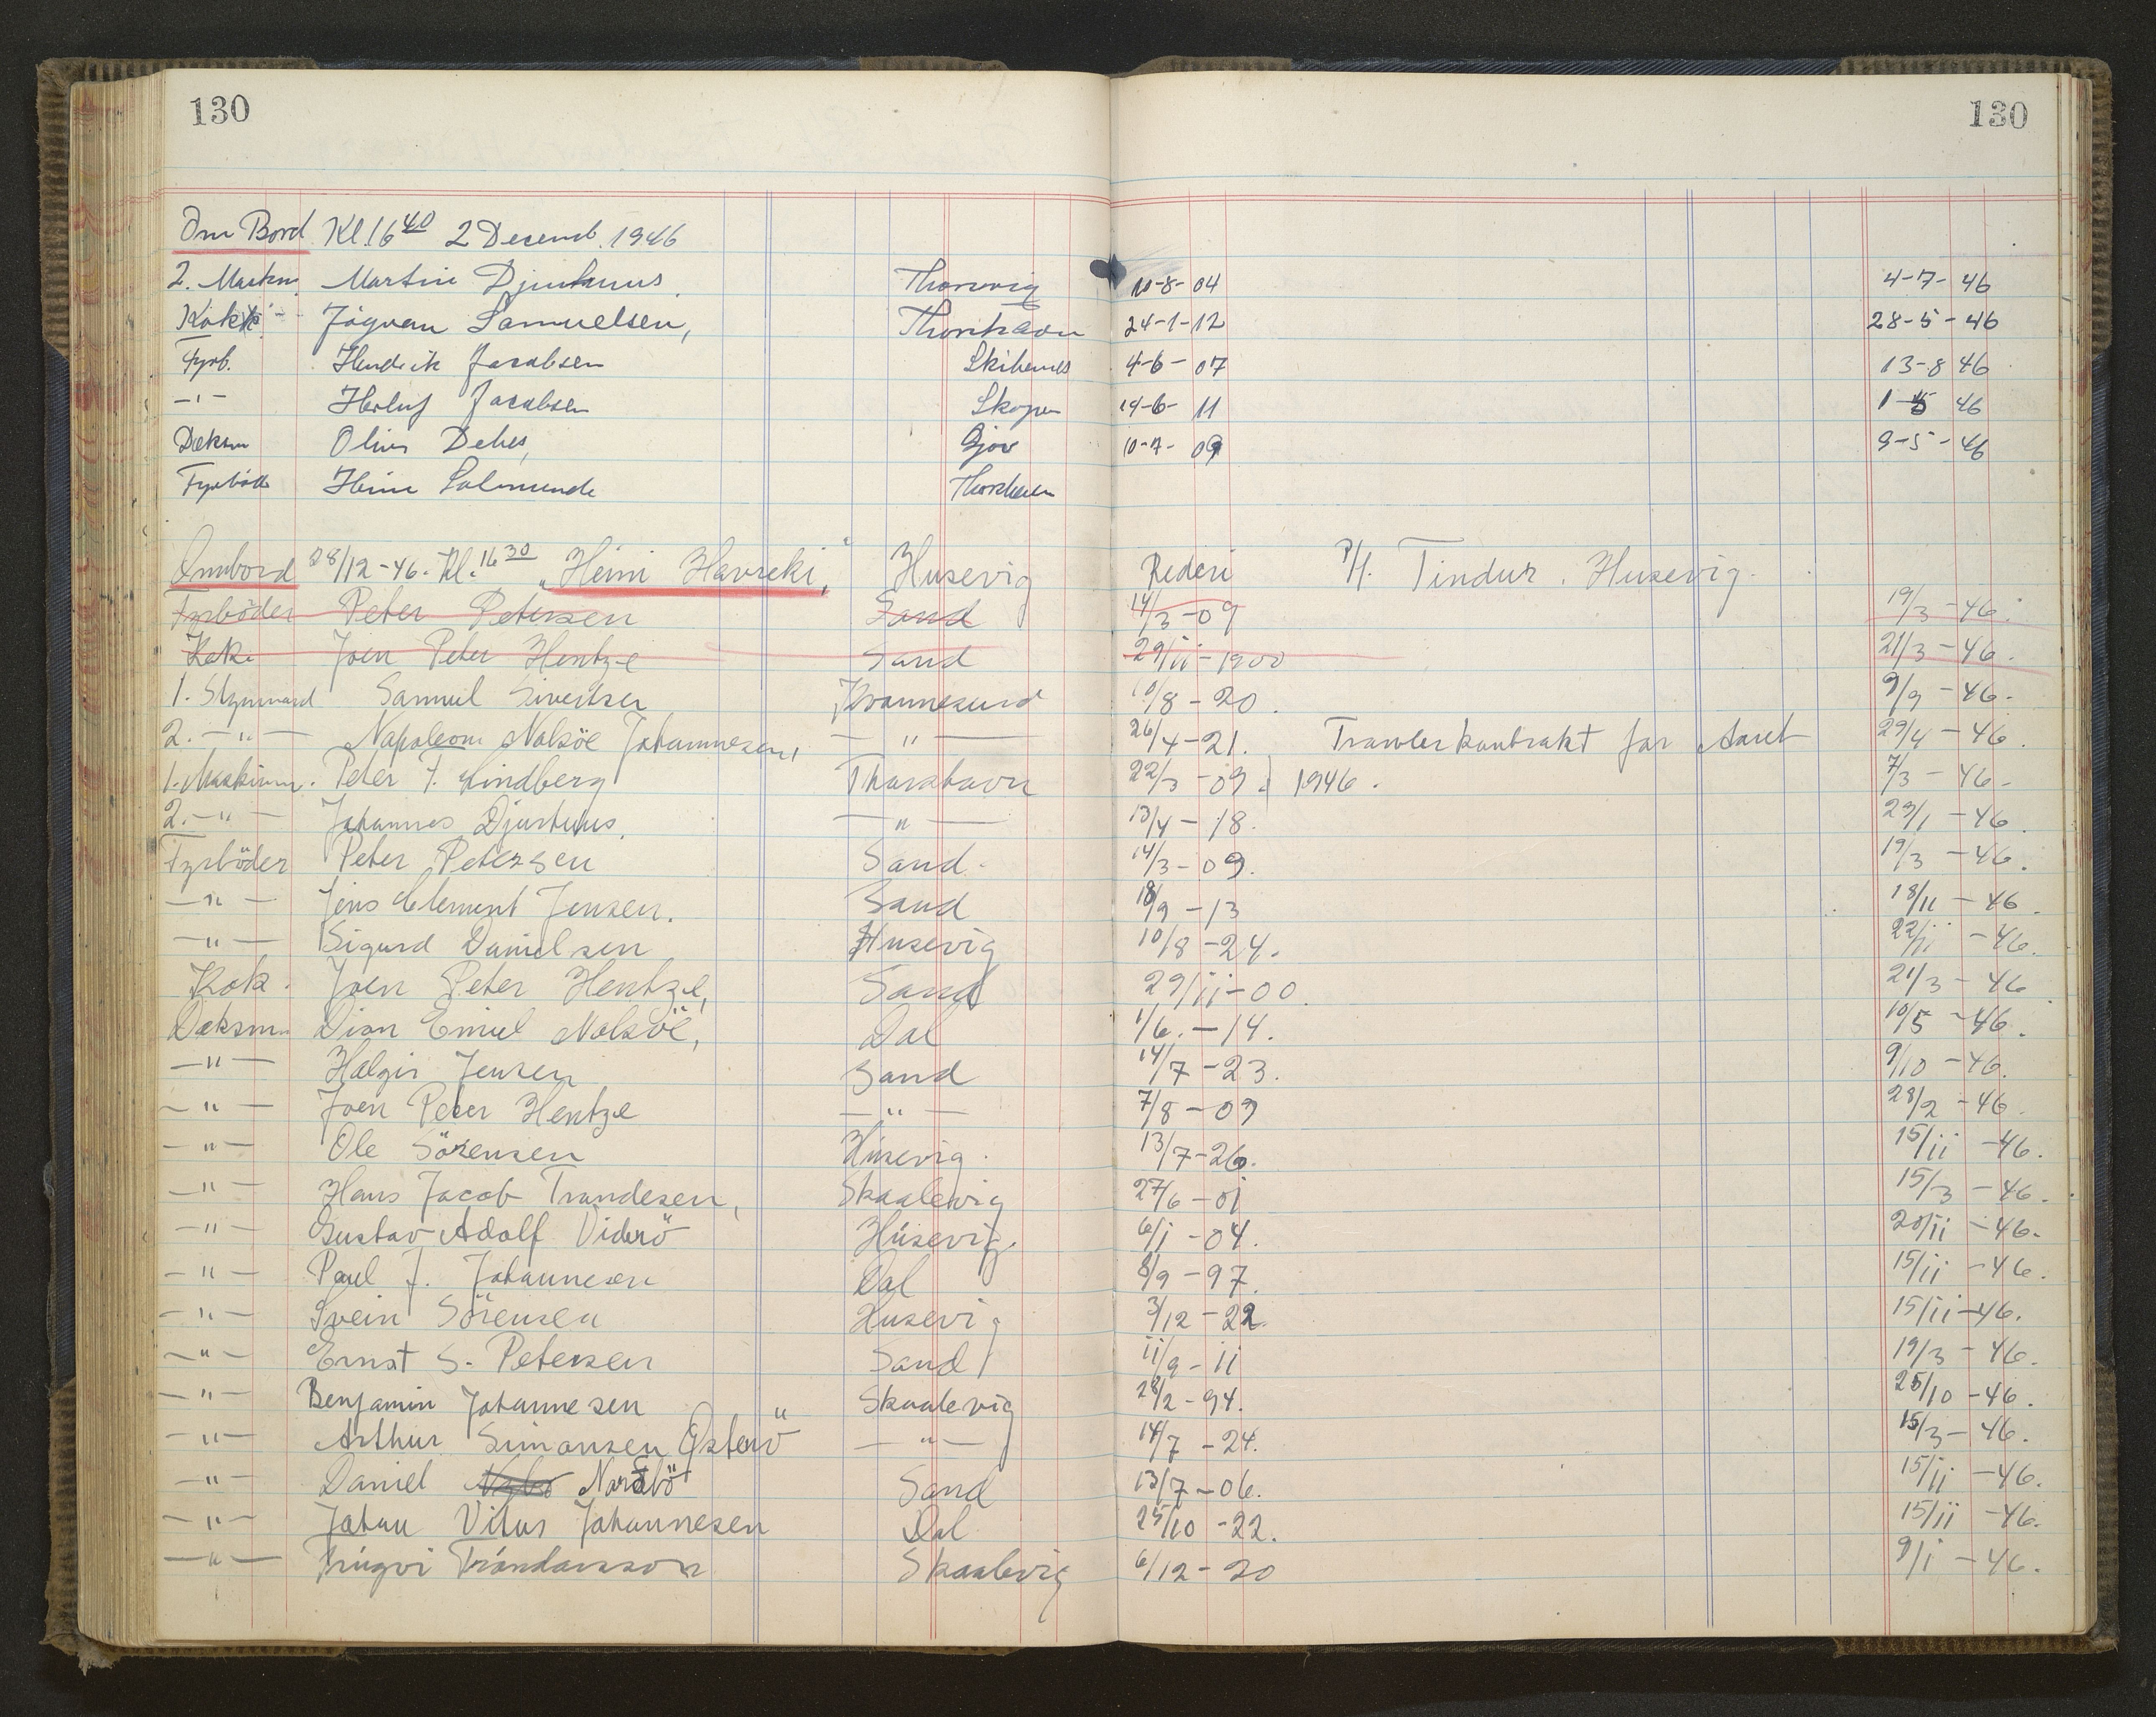 130 130
Om Bord Kl. 16 40 2 Decemb. 1946
2. Maskm. Martin Djurhuus. Thorsvig 10-8-04 4-7-46
Kokk Jógvan Samuelsen, Thorshavn 24-1-12 28-5-46
Fyrb. Hendrik Jacobsen Skibenes 4-6-07 13-8 46
-"- Herluf Jacobsen Skopen 19-6-11 46
Dæksm Oliver Debes, Gjov 10-7-09 9-5-46
Fyrböd Heini Thorshavn
Ombord 28/12-46. Kl. 16 30 "Heini Havreki," Husevig Rederi P/f. Tindur. Husevig.
Fyrböder Peter Petersen Sand 14/3-09 19/3-46.
Kok. Joen Peter Hentze Sand 29/11-1900 21/3-46.
1. Styrmand Samuel Sivertsen Kvannesund 10/8-20. 9/9-46.
2. -"- Napoleon Nolsöe Johannesen, -"- 26/4-21. Trawlerkontrakt for Aaret 29/4-46.
1. Maskinm. Peter F. Lindberg Thorshavn 22/3-09. 1946. 7/3-46-
2. -"- Johannes Djurhuus. -"- 13/4-18. 23/1-46.
Fyrböder Peter Petersen Sand. 14/3-09. 19/3-46.
-"- Jens Clement Jensen. Sand 18/9-13 18/11-46.
-"- Sigurd Danielsen Husevig 10/8-24. 22/11-46.
Kok. Joen Peter Hentze, Sand 29/11-00. 21/3-46
Dæksm. Dion Emiel Nolsöe, Dal 1/6.-14. 10/5-46.
-"- Holgir Jensen Sand 14/7-23. 9/10-46.
-"- Joen Peter Hentze -"- 7/8-09 28/2-46.
-"- Ole Sörensen Húsevig. 13/7-26. 15/11-46.
-"- Hans Jacob Trondesen, Skaalevig 27/6-01 15/3-46.
-"- Gustav Adolf Viderö Húsevig. 6/1-04. 20/11-46.
-"- Poul J. Johannesen Dal 8/9-97. 15/11-46.
-"- Svein Sörensen Husevig 3/12-22. 15/11-46.
-"- Ernst S. Petersen Sand 11/9-11 19/3-46.
-"- Benjamin Johannesen Skaalevig 28/2-94. 25/10-46.
-"- Arthur Simonsen Österö -"- 14/7-24. 15/3-46.
-"- Daniel Norðbö Sand 13/7-06. 15/11-46.
-"- Johan Vitus Johannesen Dal 25/10-22. 15/11-46.
-"- Trúgvi Tróndarsson Skaalevig 6/12-20 9/1-46.